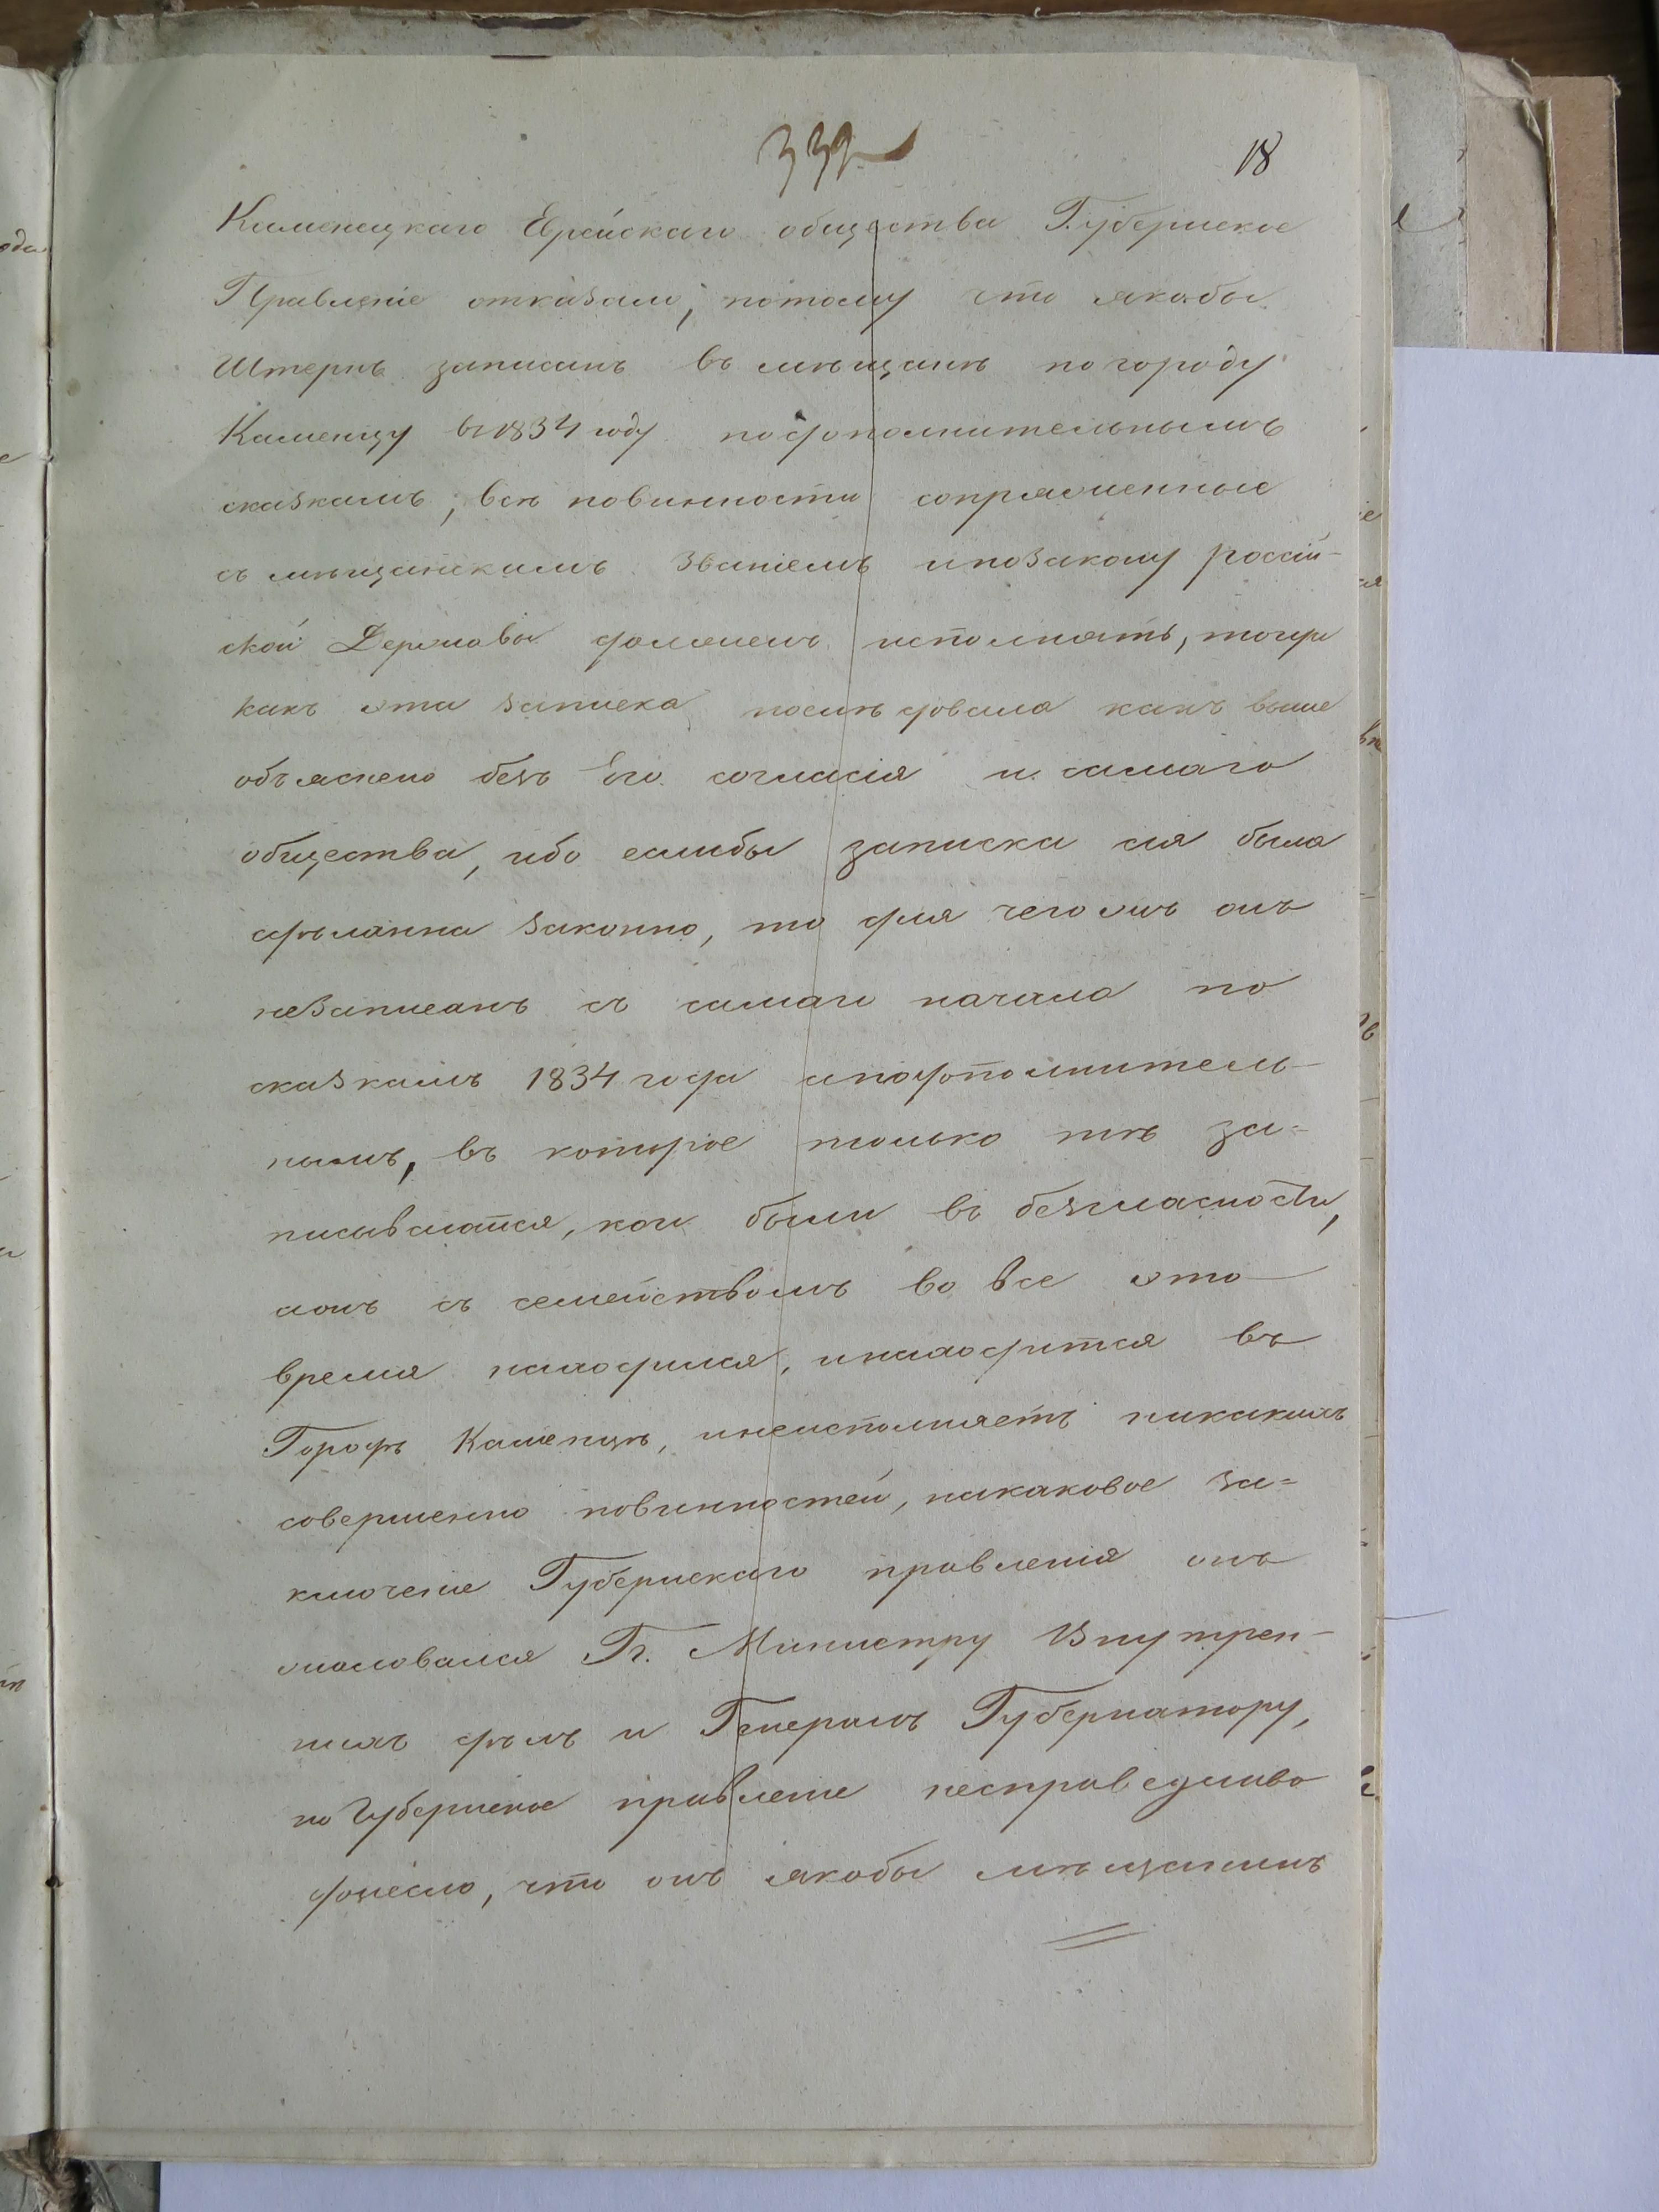 339
18
Каменецкаго Еврейскаго общества Губернское
Правленіе отказало, потому что якобы
Штернъ записанъ въ мѣщане по городу
Каменцу въ 1834 году подополнительнымъ
сказкамъ, всѣ повинности сопряженные
съ мѣщанскимъ званіемъ ипозакону россій-
ской Державы долженъ исполнять, тогда
какъ эта записка послѣдовала какъ выше
объяснено безъ Его согласія и самаго
общества, ибо еслибы записка сія была
сдѣланна законно, то для чегожъ онъ
незаписанъ съ самаго начала по
сказкамъ 1834 года аподополнитель-
нымъ, въ которое только тѣ за=
писываются, кои были въ безгласности,
аонъ съ семействомъ во все это
время находился, инаходится въ
Городѣ Каменцѣ, инеисполняетъ никакихъ
совершенно повинностей, накаковое за=
ключеніе Губернскаго правленія онъ
жаловался Гг. Министру Внутрен-
нихъ дѣлъ и Генералъ Губернатору,
но Губернское правленіе несправедливо
донесло, что онъ якобы мѣщанинъ